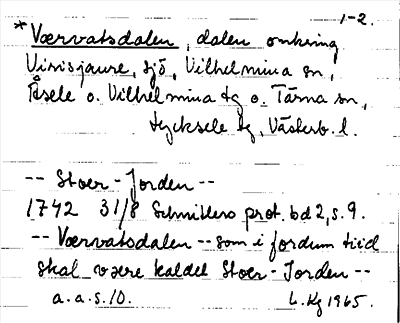 1-2.
* Værvatsdalen, dalen omkring
Virisjaure, sjö, Vilhelmina sn,
Åsele o. Vilhelmina tg o. Tärna sn,
Lycksele tg, Västerb. l.
-- Stoer-Jorden --
1742 31/8 Schnitlers prot. bd 2, s. 9.
-- Værvatsdalen -- som i fordum tiid
skal være kaldet Stoer-Jorden --
a. a. s. 10. L. Hg 1965.